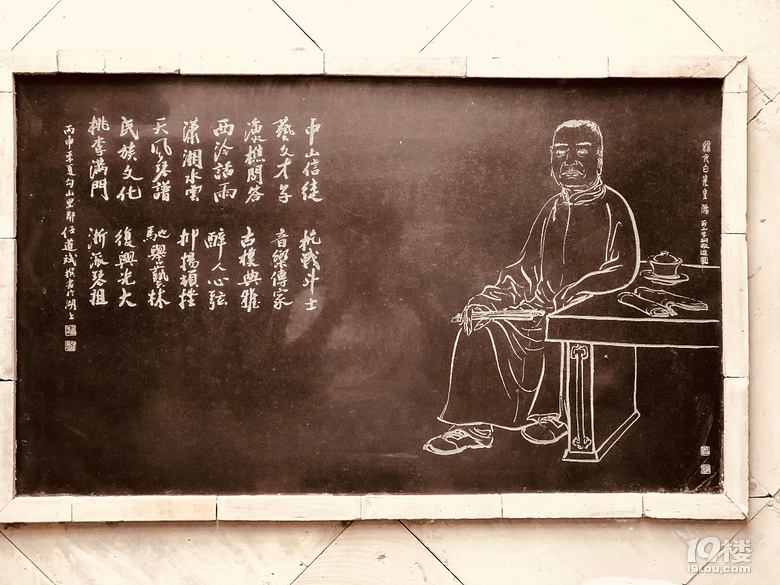 徐元白先生像
中山信徒 抗戰斗士
藝文才子 音樂傳家
漁樵問答 古樸典雅
西泠話雨 醉人心弦
瀟湘水雲 抑揚頓挫
天風琴譜 馳譽藝林
民族文化 復興光大
桃李滿門 浙派琴祖
丙申季夏勾山里鄰任道斌撰書於湖上
19楼
19lou.com